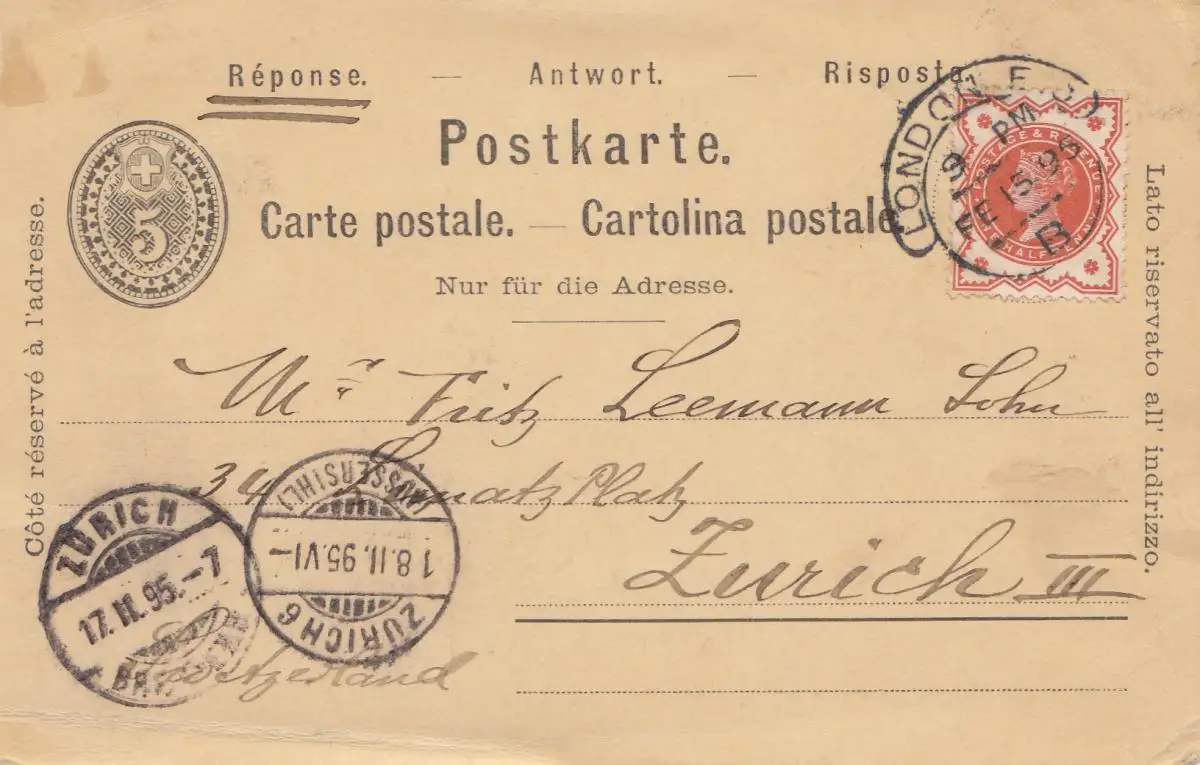 Réponse. — Antwort. — Risposta.
Postkarte.
Carte postale. — Cartolina postale.
Nur für die Adresse.
Côté réservé à l'adresse.
Lato riservato all' indirizzo.
5
LONDON E.C.
PM
FE 15 95
B
POSTAGE & REVENUE
HALFPENNY
Mr Fritz Leemann Sohn
34 Platz
Zurich III
Switzerland
ZÜRICH
17. II. 95. – 7
(AUSSERSIHL)
18. II. 95. VI –
ZÜRICH 6